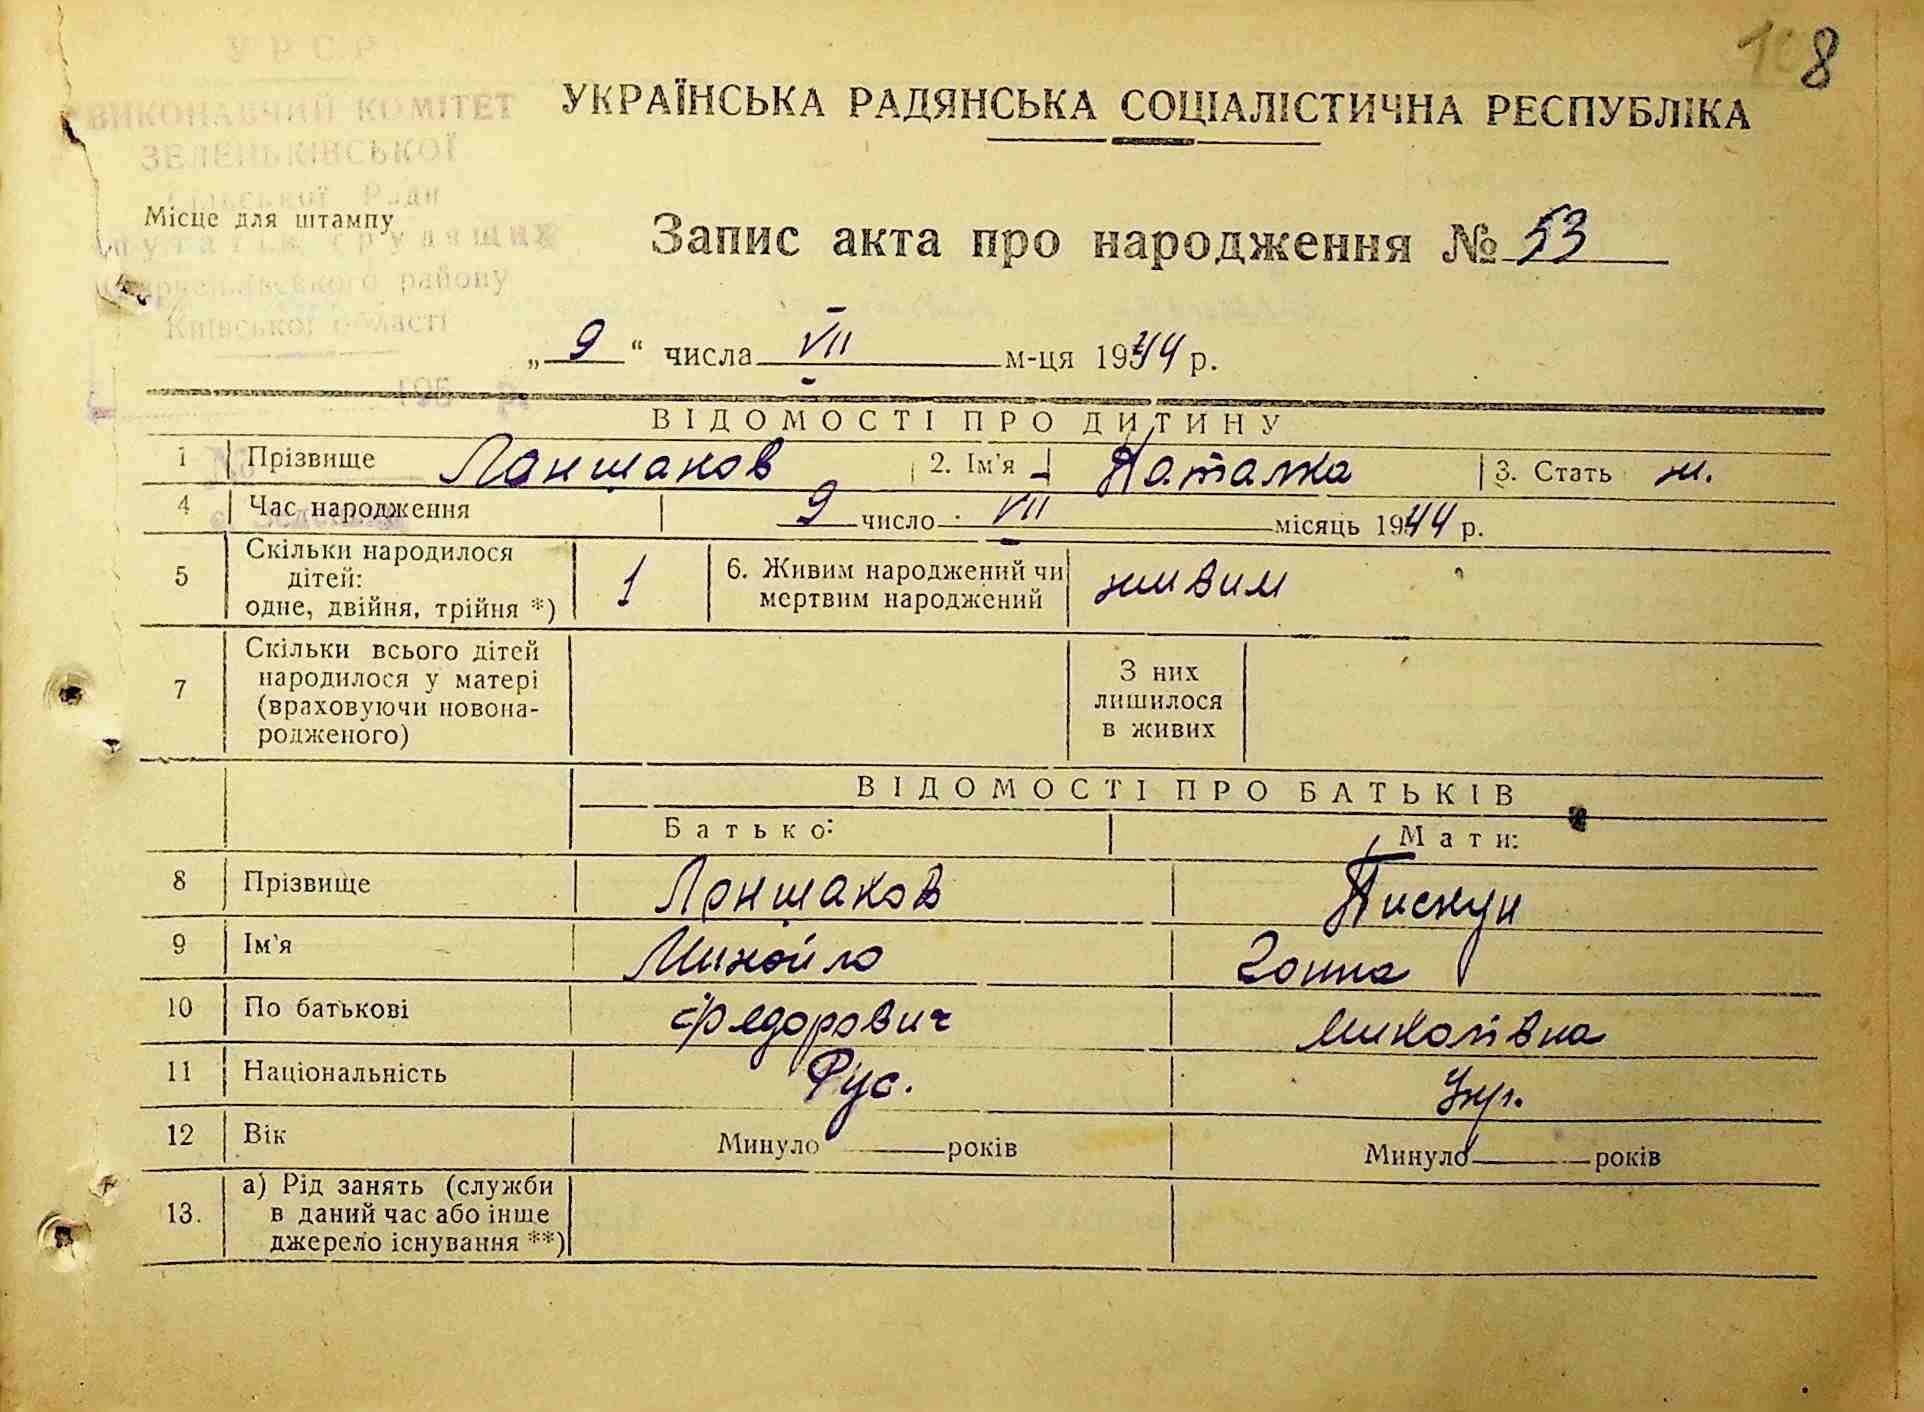 108
УРСР
ВИКОНАВЧИЙ КОМІТЕТ
ЗЕЛЕНЬКІВСЬКОЇ
сільської Ради
путатів трудящих
району
Київської області
195 р.
УКРАЇНСЬКА РАДЯНСЬКА СОЦІАЛІСТИЧНА РЕСПУБЛІКА
Місце для штампу
Запис акта про народження № 53
„ 9 “ числа VII м-ця 1944 р.
ВІДОМОСТІ ПРО ДИТИНУ
1 Прізвище Лоншаков 2. Ім'я Наталка 3. Стать ж.
4 Час народження 9 число VII місяць 1944 р.
5 Скільки народилося дітей: одне, двійня, трійня *) 1 6. Живим народжений чи мертвим народжений живим
7 Скільки всього дітей народилося у матері (враховуючи новона-родженого) З них лишилося в живих
ВІДОМОСТІ ПРО БАТЬКІВ
Батько: Мати:
8 Прізвище Лоншаков Пискун
9 Ім'я Михайло Ганна
10 По батькові Федорович Миколівна
11 Національність Рус. Укр.
12 Вік Минуло років Минуло років
13. а) Рід занять (служби в даний час або інше джерело існування **)